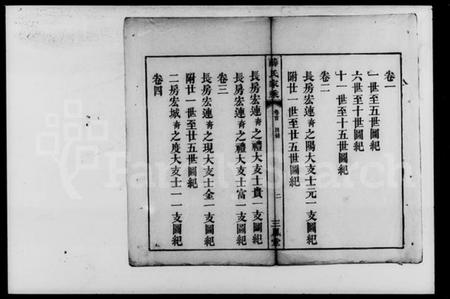 卷一
一世至五世圖紀
六世至十世圖紀
十一世至十五世圖紀
卷二
長房宏連靑之陽大支士元一支圖紀
附廿一世至廿五世圖紀
薛氏家乘
卷首 目錄
二
三鳳堂
長房宏連靑之禮大支士貴一支圖紀
長房宏連靑之禮大支士富一支圖紀
卷三
長房宏連靑之現大支士金一支圖紀
附廿一世至廿五世圖紀
二房宏城靑之度大支士一一支圖紀
卷四
FamilySearch